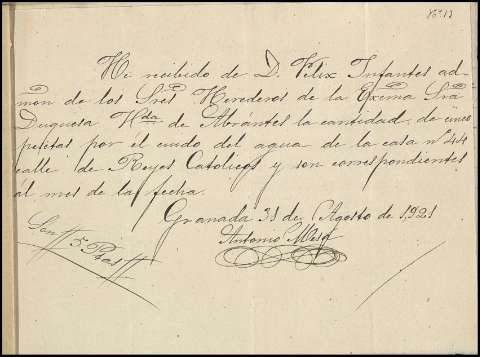 He recibido de D. Felix Infantes ad-
mon de los Sres Herederos de la Exema Sra
Duquesa Hda de Abrantes la cantidad de cinco
pesetas por el cuido del agua de la casa nº 44
calle de Reyes Catolicos y son correspondientes
al mes de la fecha.
Granada 31 de Agosto de 1921
Antonio Mesa
Son 5 Ptas